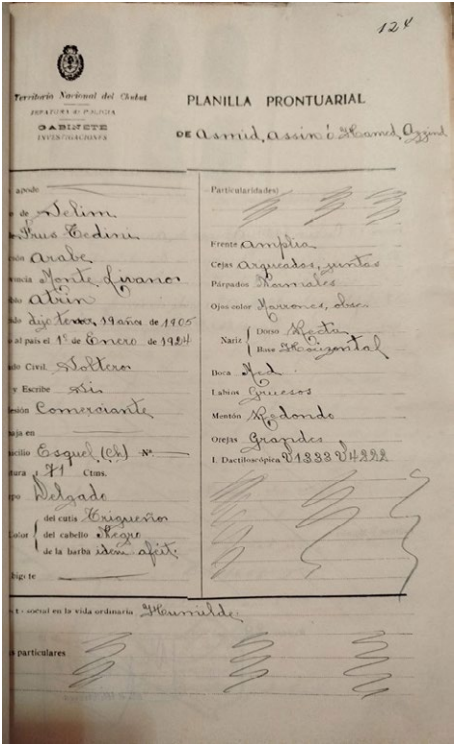 124
Territorio Nacional del Chubut
JEFATURA DE POLICIA
GABINETE
INVESTIGACIONES
PLANILLA PRONTUARIAL
DE Asmid, Assin ó Hamed, Azzind
apodo
de Selim
Arabe
Monte Livano
dijo tener 19 años de 1905
al país el 1º de Enero de 1924
Civil. Soltero
y Escribe Si
Comerciante
en
Esquel (Ch) Nº
71 Ctms.
Delgado
del cutis Trigueño
del cabello Negro
de la barba idem afeit.
social en la vida ordinaria Humilde
particulares
Particularidades)
Frente amplia
Cejas Arqueadas, juntas
Párpados Normales
Ojos color Marrones, obsc.
Nariz
Dorso Recta
Base Horizontal
Boca Med.
Labios Gruesos
Mentón Redondo
Orejas Grandes
I. Dactiloscópica V1333 V4222